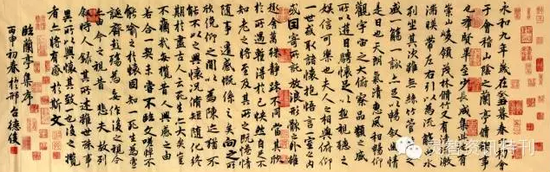 永和九年歲在癸丑暮春之初會
于會稽山陰之蘭亭脩禊事
也羣賢畢至少長咸集此地有
崇山峻領茂林脩竹又有清流激
湍暎帶左右引以為流觴曲水
列坐其次雖無絲竹管弦之
盛一觴一詠亦足以暢敘幽情
是日也天朗氣清惠風和暢仰
觀宇宙之大俯察品類之盛
所以遊目騁懷足以極視聽之
娛信可樂也夫人之相與俯仰
一世或取諸懷抱悟言一室之內
或因寄所託放浪形骸之外雖
趣舍萬殊靜躁不同當其欣
於所遇暫得於己快然自足不
知老之將至及其所之既倦情
隨事遷感慨係之矣向之所
欣俛仰之閒以為陳迹猶不
能不以之興懷況脩短隨化終
期於盡古人云死生亦大矣豈
不痛哉每攬昔人興感之由
若合一契未嘗不臨文嗟悼不
能喻之於懷固知一死生為虛
誕齊彭殤為妄作後之視今
亦由今之視昔悲夫故列
敘時人錄其所述雖世殊事
異所以興懷其致一也後之攬
者亦將有感於斯文
臨蘭亭集序
丙申初春於邢台德俊
资讯特刊